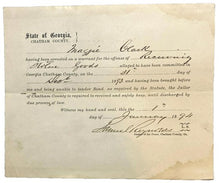 State of Georgia,
CHATHAM COUNTY.
Maggie Clark
having been arrested on a warrant for the offense of Receiving
Stolen Goods alleged to have been committed in
Georgia Chatham County, on the 31 day of
Dec 1893, and having been brought before
me and being unable to tender Bond, as required by the Statute, the Jailor
of Chatham County is required to receive and safely keep, until discharged by
due process of law.
Witness my hand and seal, this the 1st
day of January 1894